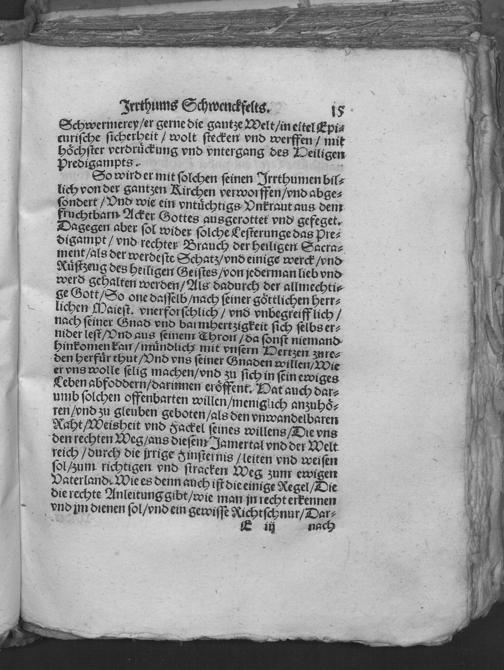 Jrrthums Schwenckfelts. 15
Schwermerey/er gerne die gantze Welt/in eitel Epi-
curische sicherheit / wolt stecken vnd werffen / mit
höchster verdrückung vnd vntergang des Heiligen
Predigampts.
So wird er mit solchen seinen Jrrthumen bil-
lich von der gantzen Kirchen verworffen/vnd abge-
sondert / Vnd wie ein vntüchtigs Vnkraut aus dem
fruchtbarn Acker Gottes ausgerottet vnd gefeget.
Dagegen aber sol wider solche Lesterunge das Pre-
digampt / vnd rechter Brauch der heiligen Sacra-
ment/als der werdeste Schatz/vnd einige werck/vnd
Rüstzeug des heiligen Geistes/von jederman lieb vnd
werd gehalten werden / Als dadurch der allmechti-
ge Gott/So one dasselb/nach seiner göttlichen herr-
lichen Maiest. vnerforschlich / vnd vnbegreifflich /
nach seiner Gnad vnd barmhertzigkeit sich selbs er-
nider lest/Vnd aus seinem Thron / da sonst niemand
hinkomen kan / mündlich mit vnsern Hertzen zure-
den herfür thut/Vnd vns seiner Gnaden willen/Wie
er vns wolle selig machen/vnd zu sich in sein ewiges
Leben abfoddern/darinnen eröffent. Hat auch dar-
umb solchen offenbarten willen/meniglich anzuhö-
ren/vnd zu gleuben geboten/als den vnwandelbaren
Raht/Weisheit vnd Fackel seines willens/Die vns
den rechten Weg/aus diesem Jamertal vnd der Welt
reich / durch die jrrige Finsternis / leiten vnd weisen
sol/zum richtigen vnd stracken Weg zum ewigen
Vaterland. Wie es denn auch ist die einige Regel/Die
die rechte Anleitung gibt/wie man jn recht erkennen
vnd jm dienen sol/vnd ein gewisse Richtschnur/Dar-
E iij nach